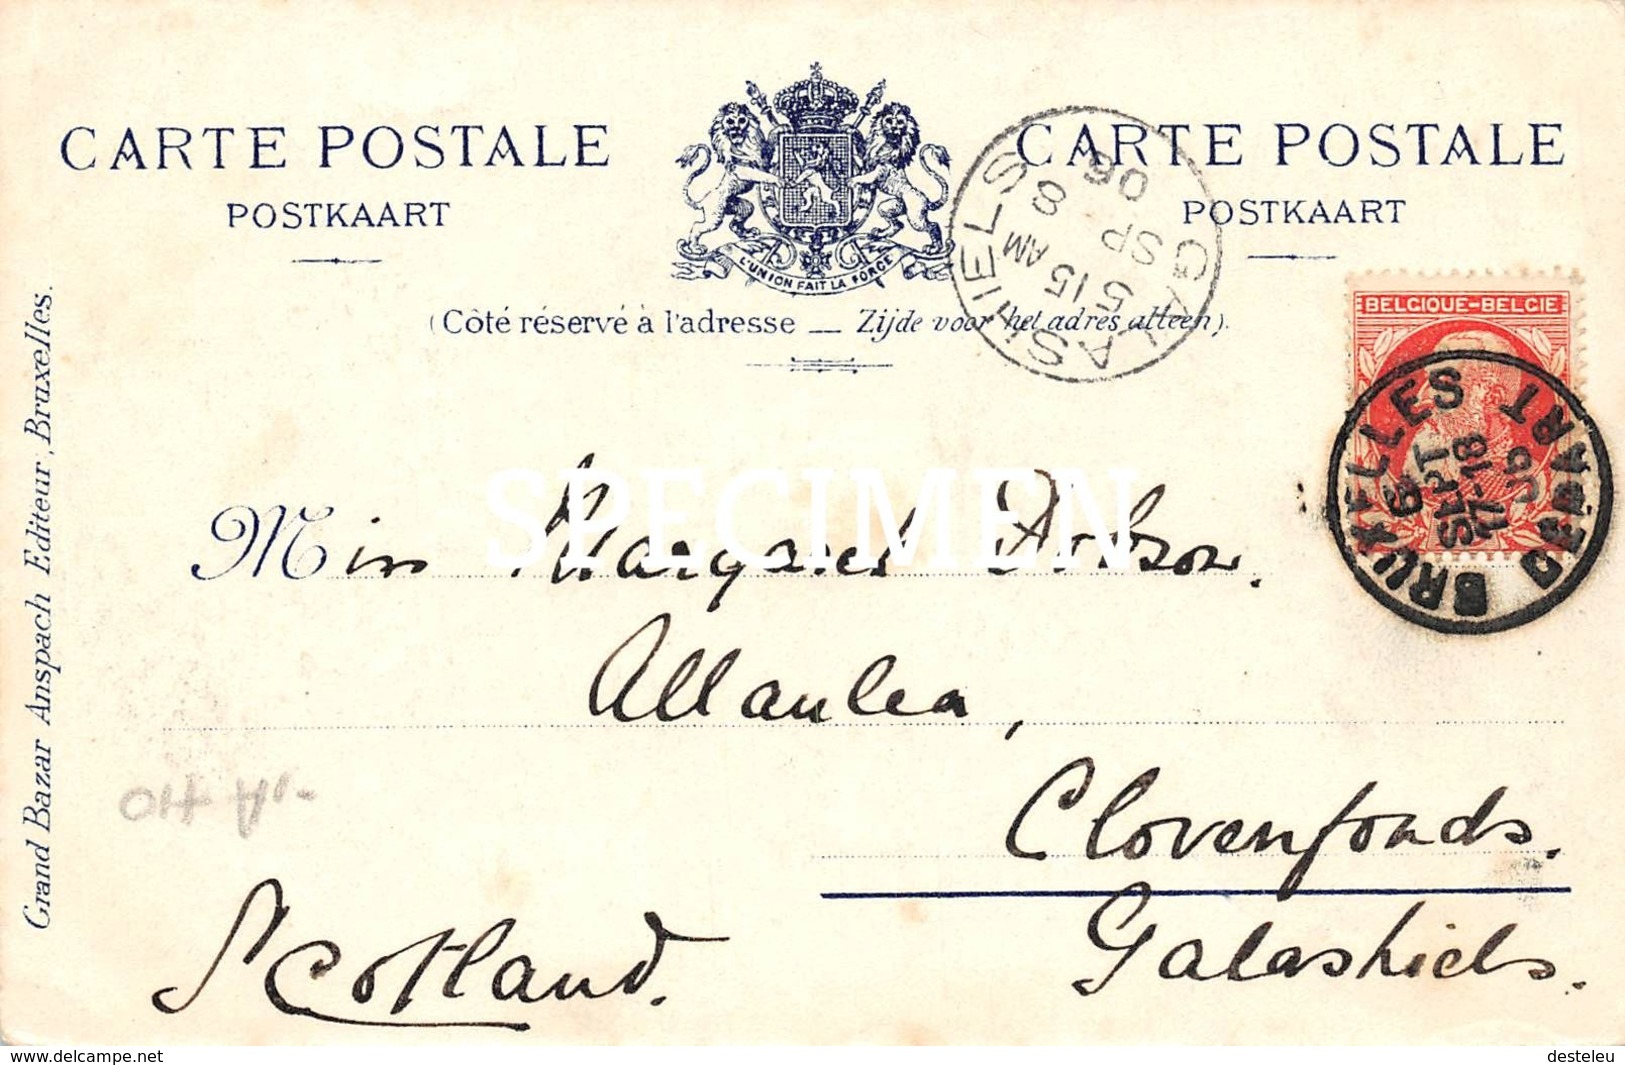 CARTE POSTALE
POSTKAART
L'UNION FAIT LA FORCE
CARTE POSTALE
POSTKAART
(Côté réservé à l'adresse — Zijde voor het adres alleen).
GALASHIELS
5 15 AM
SP 8
06
BELGIQUE-BELGIE
BRUXELLES
6
SEPT
17-18
06
DEPART
SPECIMEN
Miss Margaret Dobson.
Allanlea,
Clovenfords.
Galashiels.
Scotland.
Grand Bazar Anspach Editeur, Bruxelles.
www.delcampe.net
desteleu